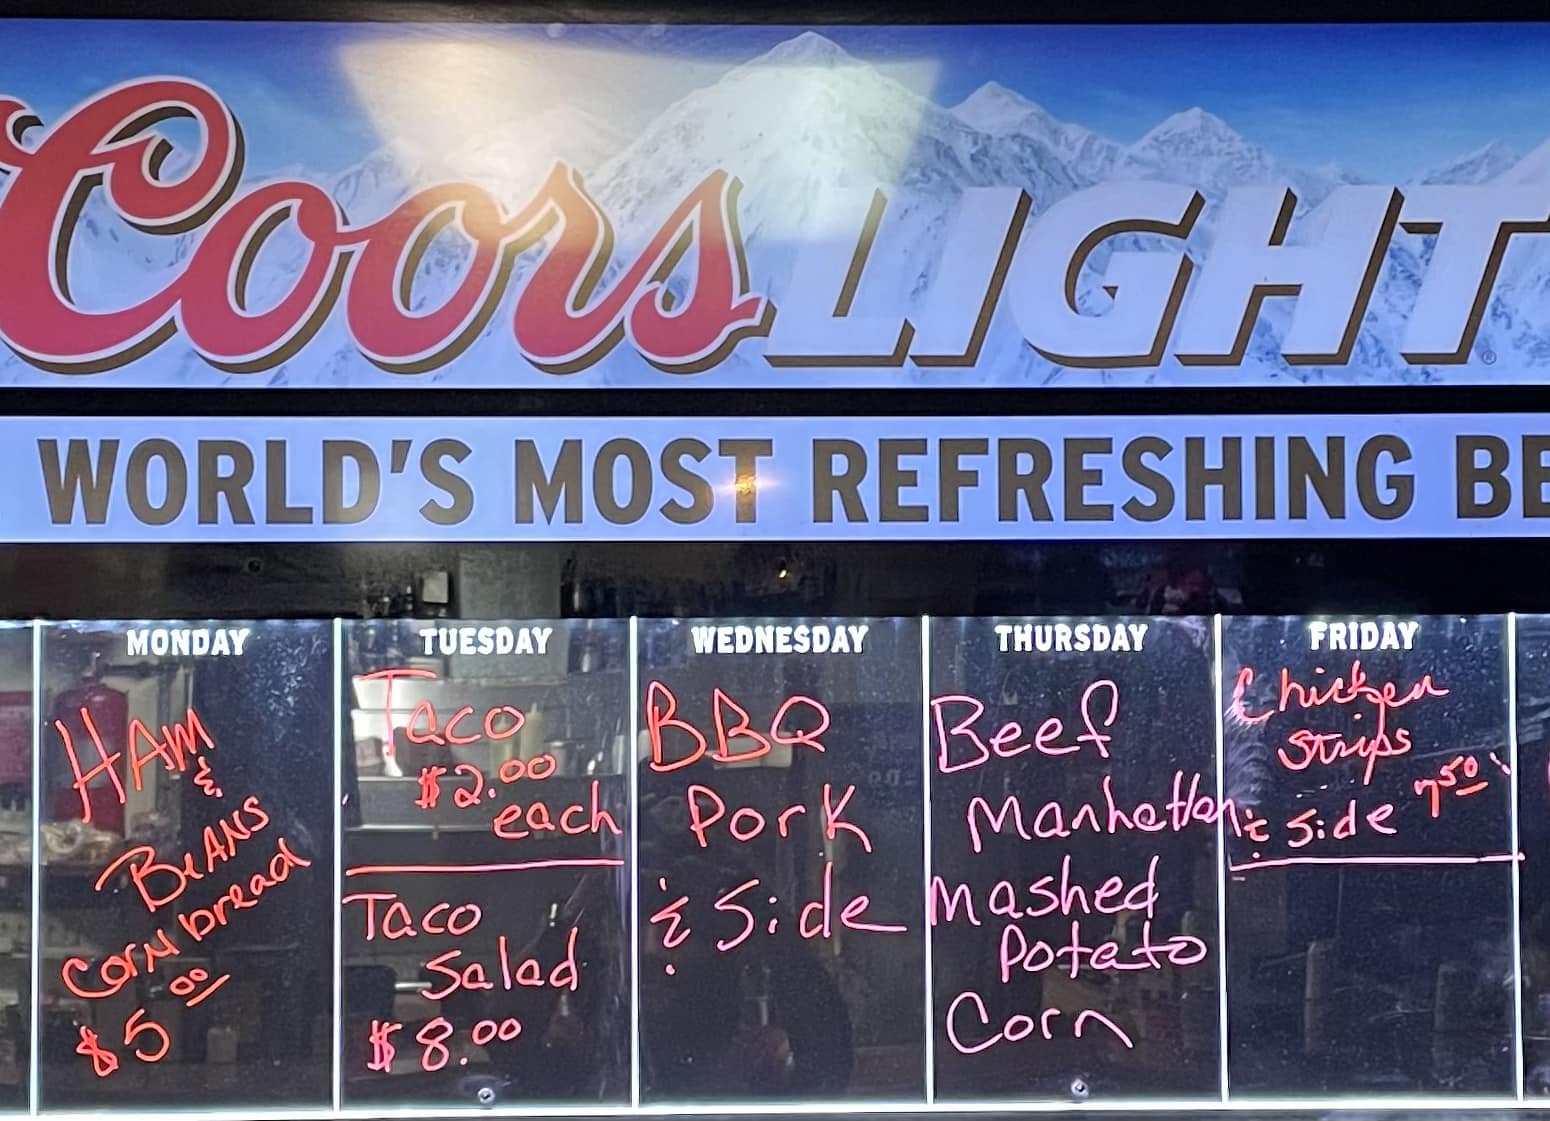 Coors LIGHT
WORLD'S MOST REFRESHING BE
MONDAY
HAM
&
BEANS
CORNbread
$5 00
TUESDAY
Taco
$2.00
each
Taco
Salad
$8.00
WEDNESDAY
BBQ
Pork
& Side
THURSDAY
Beef
Manhattan
Mashed
Potato
Corn
FRIDAY
Chicken
Strips
& Side 7 50